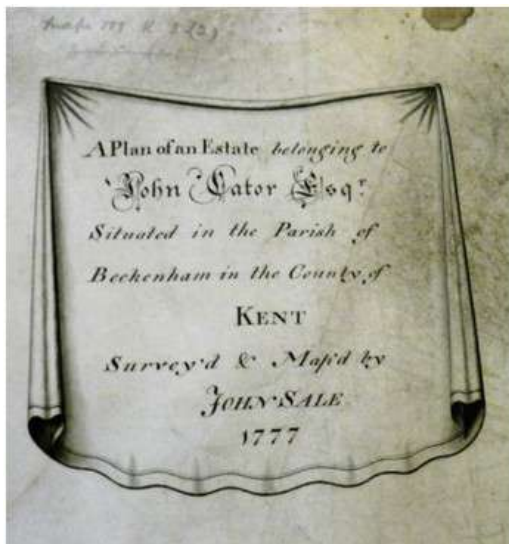 A Plan of an Estate belonging to
John Cator Esqr.
Situated in the Parish of
Beckenham in the County of
KENT
Survey'd & Map'd by
JOHN SALE
1777